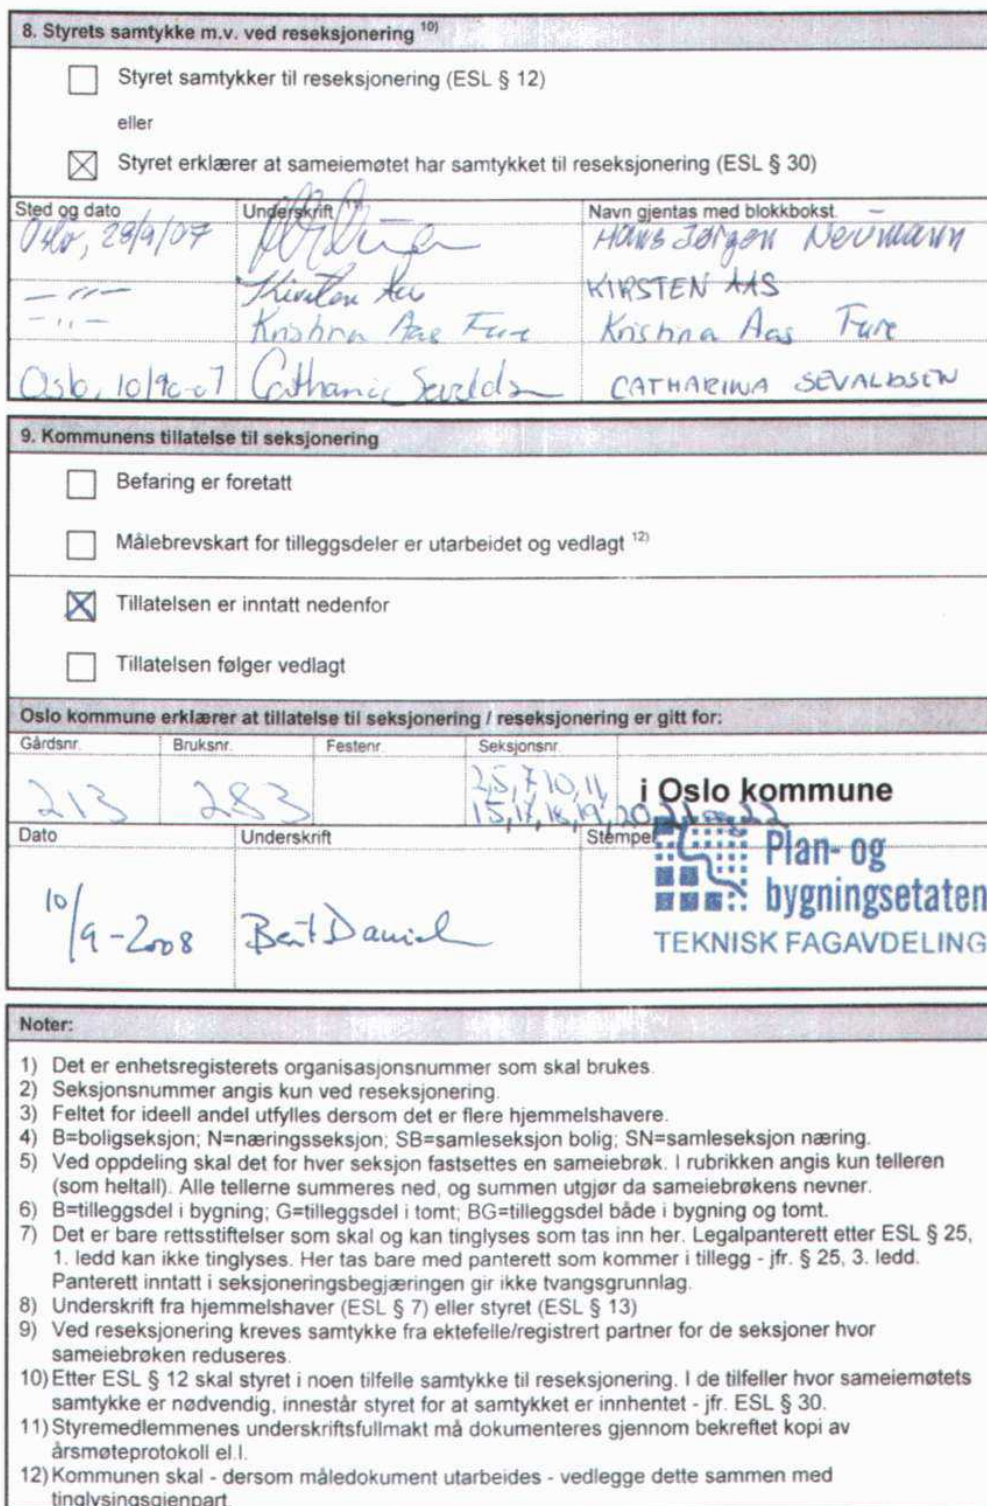 8. Styrets samtykke m.v. ved reseksjonering 10)
Styret samtykker til reseksjonering (ESL § 12)
eller
Styret erklærer at sameiemøtet har samtykket til reseksjonering (ESL § 30)
Sted og dato Underskrift Navn gjentas med blokkbokst.
Oslo, 28/9/07 Hans Jørgen Neumann
— 〃 — Kirsten Aas KIRSTEN AAS
— 〃 — Kristina Aas Fure Kristina Aas Fure
Oslo, CATHARINA SEVALDSEN
9. Kommunens tillatelse til seksjonering
Befaring er foretatt
Målebrevskart for tilleggsdeler er utarbeidet og vedlagt 12)
Tillatelsen er inntatt nedenfor
Tillatelsen følger vedlagt
Oslo kommune erklærer at tillatelse til seksjonering / reseksjonering er gitt for:
Gårdsnr. Bruksnr. Festenr. Seksjonsnr.
213 283 2,5,7,10,11, i Oslo kommune
15,17,18,19,20,21 og 22
Dato Underskrift Stempel
Plan- og
bygningsetaten
TEKNISK FAGAVDELING
10/9-2008
Noter:
1) Det er enhetsregisterets organisasjonsnummer som skal brukes.
2) Seksjonsnummer angis kun ved reseksjonering.
3) Feltet for ideell andel utfylles dersom det er flere hjemmelshavere.
4) B=boligseksjon; N=næringsseksjon; SB=samleseksjon bolig; SN=samleseksjon næring.
5) Ved oppdeling skal det for hver seksjon fastsettes en sameiebrøk. I rubrikken angis kun telleren
(som heltall). Alle tellerne summeres ned, og summen utgjør da sameiebrøkens nevner.
6) B=tilleggsdel i bygning; G=tilleggsdel i tomt; BG=tilleggsdel både i bygning og tomt.
7) Det er bare rettsstiftelser som skal og kan tinglyses som tas inn her. Legalpanterett etter ESL § 25,
1. ledd kan ikke tinglyses. Her tas bare med panterett som kommer i tillegg - jfr. § 25, 3. ledd.
Panterett inntatt i seksjoneringsbegjæringen gir ikke tvangsgrunnlag.
8) Underskrift fra hjemmelshaver (ESL § 7) eller styret (ESL § 13)
9) Ved reseksjonering kreves samtykke fra ektefelle/registrert partner for de seksjoner hvor
sameiebrøken reduseres.
10) Etter ESL § 12 skal styret i noen tilfelle samtykke til reseksjonering. I de tilfeller hvor sameiemøtets
samtykke er nødvendig, innestår styret for at samtykket er innhentet - jfr. ESL § 30.
11) Styremedlemmenes underskriftsfullmakt må dokumenteres gjennom bekreftet kopi av
årsmøteprotokoll el.l.
12) Kommunen skal - dersom måledokument utarbeides - vedlegge dette sammen med
tinglysingsgjenpart.